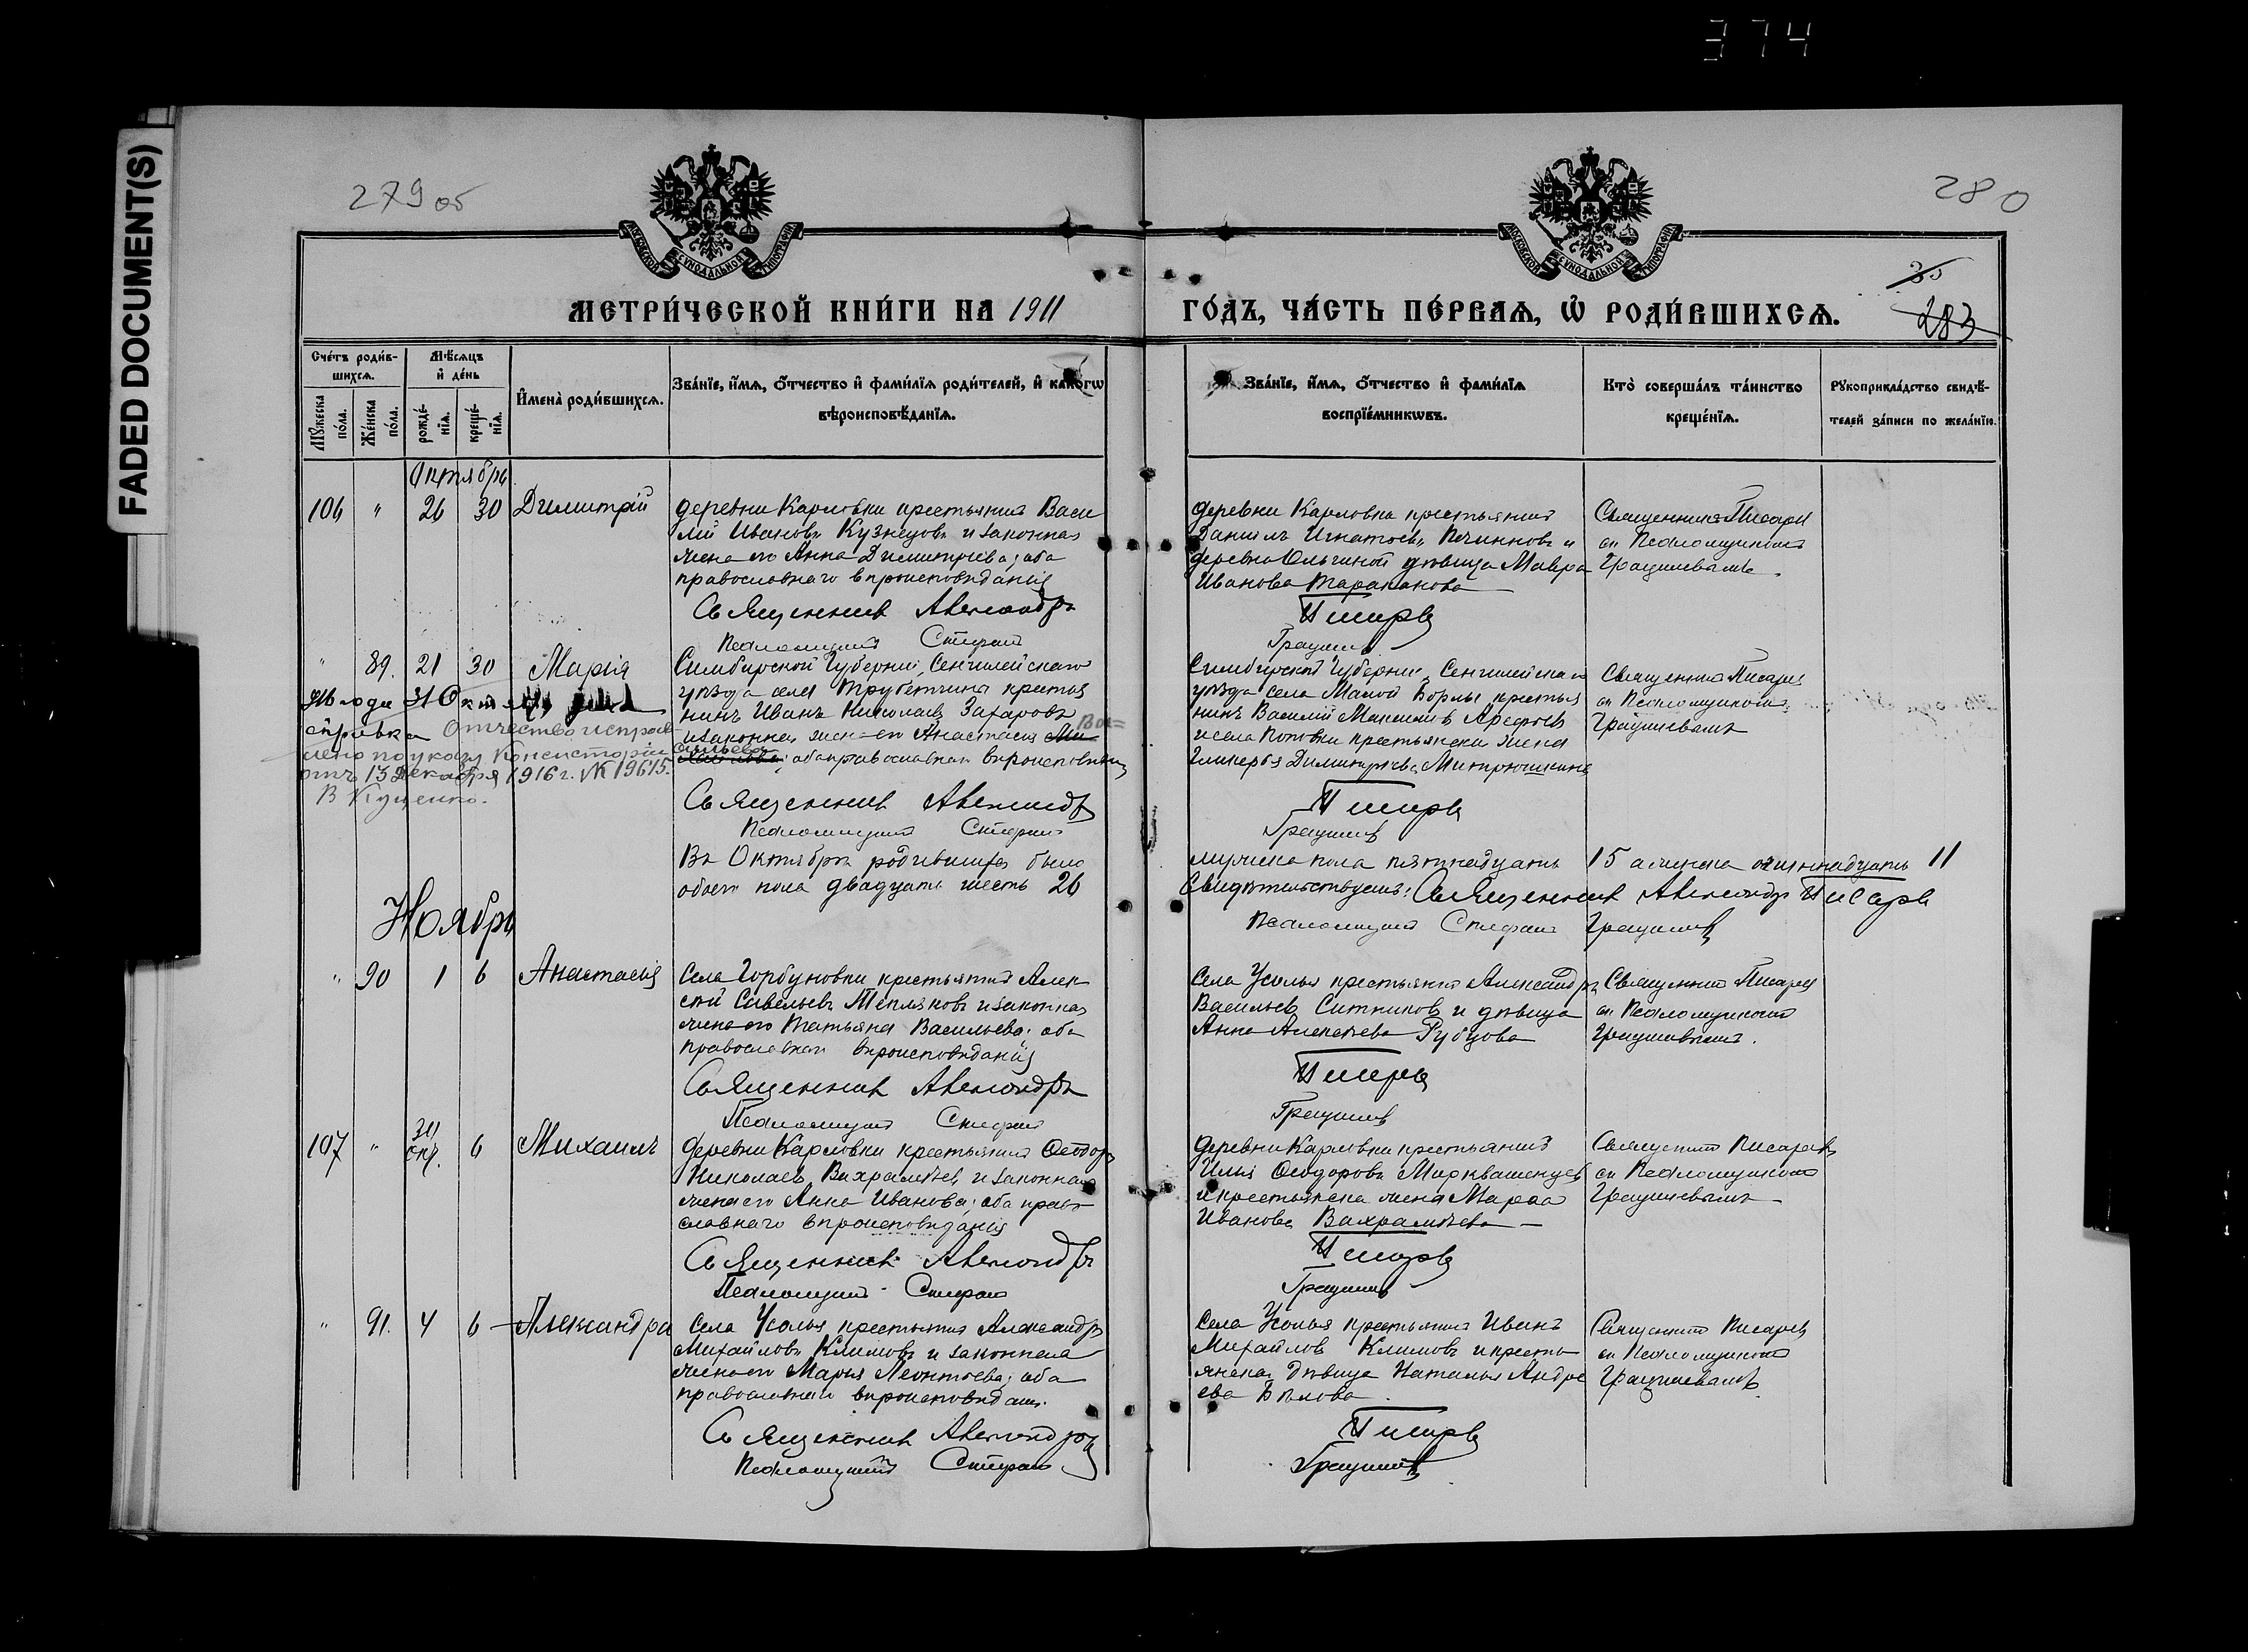 374
FADED DOCUMENT(S)
279 об
280
МОСКОВСКОЙ СѴНОДАЛЬНОЙ ТИПОГРАФІИ
МОСКОВСКОЙ СѴНОДАЛЬНОЙ ТИПОГРАФІИ
35
283
МЕТРИ́ЧЕСКОЙ КНИ́ГИ НА 1911
ГО́ДЪ, ЧА́СТЬ ПЕ́РВАѦ, Ѽ РОДИ́ВШИХСѦ.
Сче́тъ роди́в-
шихсѧ.
Мꙋ́жеска по́ла.
Же́нска по́ла.
Мѣ́сѧцъ
и҆ де́нь
рожде́-
нїѧ.
креще́-
нїѧ.
И҆мена̀ роди́вшихсѧ.
Зва́нїе, и҆́мѧ, ѻ҆́тчество и҆ фами́лїѧ роди́телей, и҆ како́гѡ
вѣроисповѣ́данїѧ.
Зва́нїе, и҆́мѧ, ѻ҆́тчество и҆ фами́лїѧ
воспрїе́мникѡвъ.
Кто̀ соверша́лъ та́инство
креще́нїѧ.
Рꙋкоприкла́дство свидѣ́-
телей за́писи по жела́нїю.
Октябрь
106 " 26 30 Димитрій
деревни Карловки крестьянинъ Васи
лій Ивановъ Кузнецовъ и законная
жена его Анна Димитріева; оба
православнаго вѣроисповѣданія
Священникъ Александръ
Псаломщикъ Стефанъ
деревни Карловки крестьянинъ
Даніилъ Игнатьевъ Печинновъ и
деревни Ольгиной дѣвица Мавра
Иванова Тараканова
Писаревъ
Грацинъ
Священникъ Писаревъ
съ Псаломщикомъ
" 89. 21 30 Марія
Симбирской Губерніи, Сенгилейскаго
уѣзда села Трубетчина крестья
нинъ Иванъ Николаевъ Захаровъ
и законная жена его Анастасія Ми-
хайлова; оба православнаго вѣроисповѣданія
Ва=
сильева
31 Октября
справка Отчество исправ-
лено по указу Консисторіи
отъ 13 Декабря 1916 г. № 19615.
Священникъ Александръ
Псаломщикъ Стефанъ
Симбирской Губерніи, Сенгилейскаго
уѣзда села Малой Борлы крестья
нинъ Василій Максимовъ Арефьевъ
и села Поповки крестьянская жена
Гликерія Димитріева Митрюшкина
Писаревъ
Священникъ Писаревъ
съ Псаломщикомъ
Въ Октябрѣ родившихся было
обоего пола двадцать шесть 26
мужеска пола пятнадцать 15 а женска одиннадцать 11
Свидѣтельствуемъ: Священникъ Александръ Писаревъ
Псаломщикъ Стефанъ
Ноябрь
" 90 1 6 Анастасія
Села Горбуновки крестьянинъ Алек
сѣй Савельевъ Тепляковъ и законная
жена его Татьяна Васильева; оба
православнаго вѣроисповѣданія
Священникъ Александръ
Псаломщикъ Стефанъ
Села Усолья крестьянинъ Александръ
Васильевъ Ситниковъ и дѣвица
Анна Алексѣева Рубцова
Писаревъ
Священникъ Писаревъ
съ Псаломщикомъ
107 " 30 Окт. 6 Михаилъ
деревни Карловки крестьянинъ Ѳеодоръ
Николаевъ Вахрамѣевъ и законная
жена его Анна Иванова; оба право
славнаго вѣроисповѣданія
Священникъ Александръ
Псаломщикъ Стефанъ
деревни Карловки крестьянинъ
Илья Ѳеодоровъ Морквашенцевъ
и крестьянская жена Марѳа
Иванова Вахрамѣева
Писаревъ
Священникъ Писаревъ
съ Псаломщикомъ
" 91. 4 6 Александра
Села Усолья крестьянинъ Александръ
Михайловъ Климовъ и законная
жена его Марія Леонтьева; оба
православнаго вѣроисповѣданія.
Священникъ Александръ
Псаломщикъ Стефанъ
Села Усолья крестьянинъ Иванъ
Михайловъ Климовъ и кресть
янская дѣвица Наталья Андре
ева Бѣлова
Писаревъ
Священникъ Писаревъ
съ Псаломщикомъ